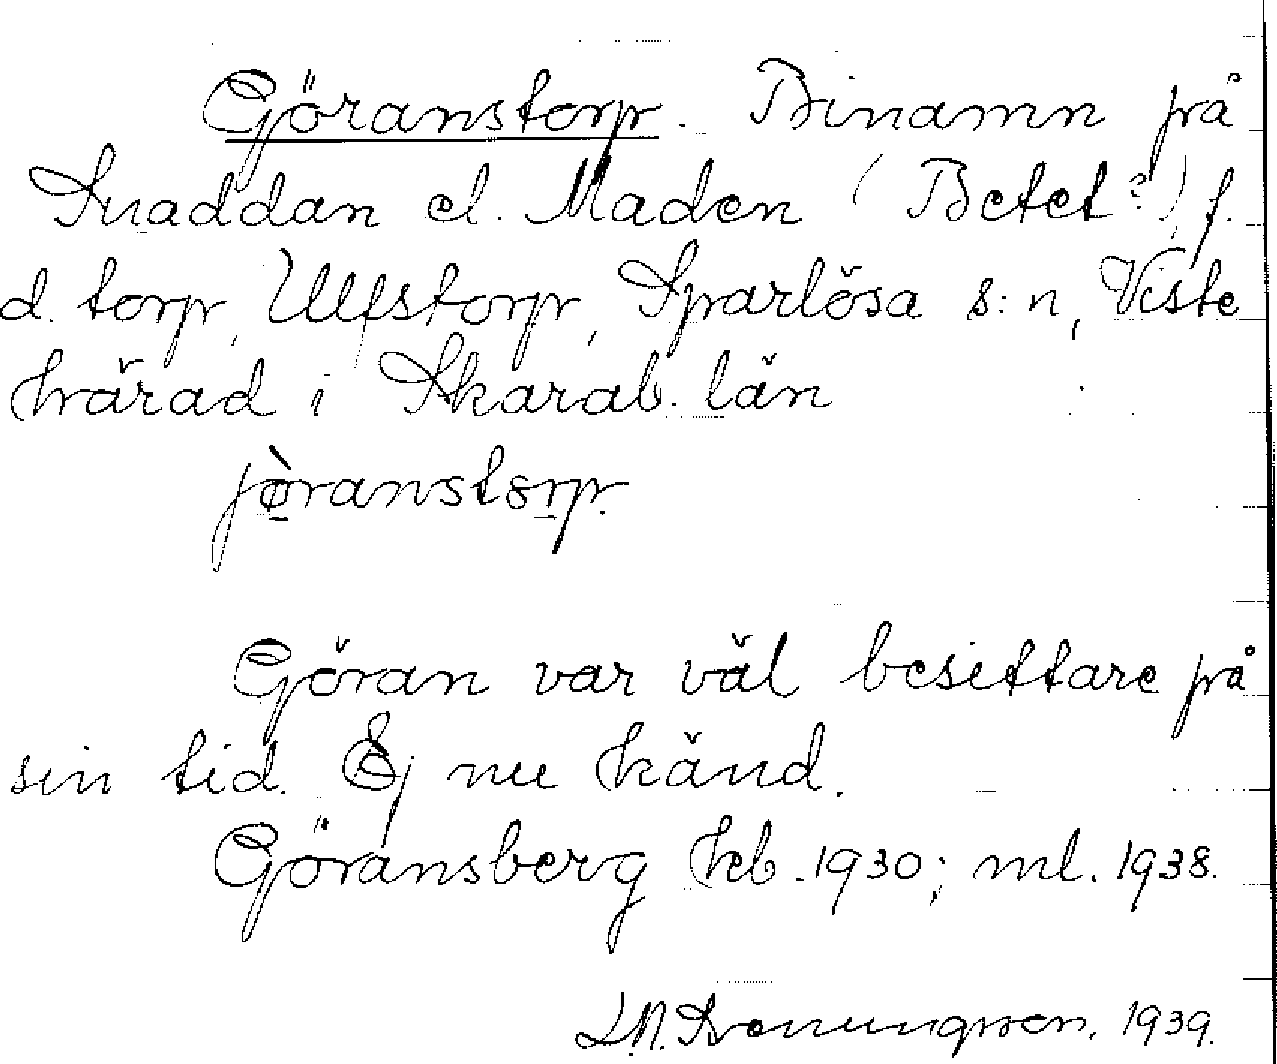 Göranstorp. Binamn på
Snaddan el. Maden (Betet?) f.
d. torp, Ulfstorp, Sparlösa s:n, Viste
härad i Skarab. län
jø̀ranstorp.
Göran var väl besittare på
sin tid. Ej nu känd.
Göransberg kb. 1930; ml. 1938.
1939.